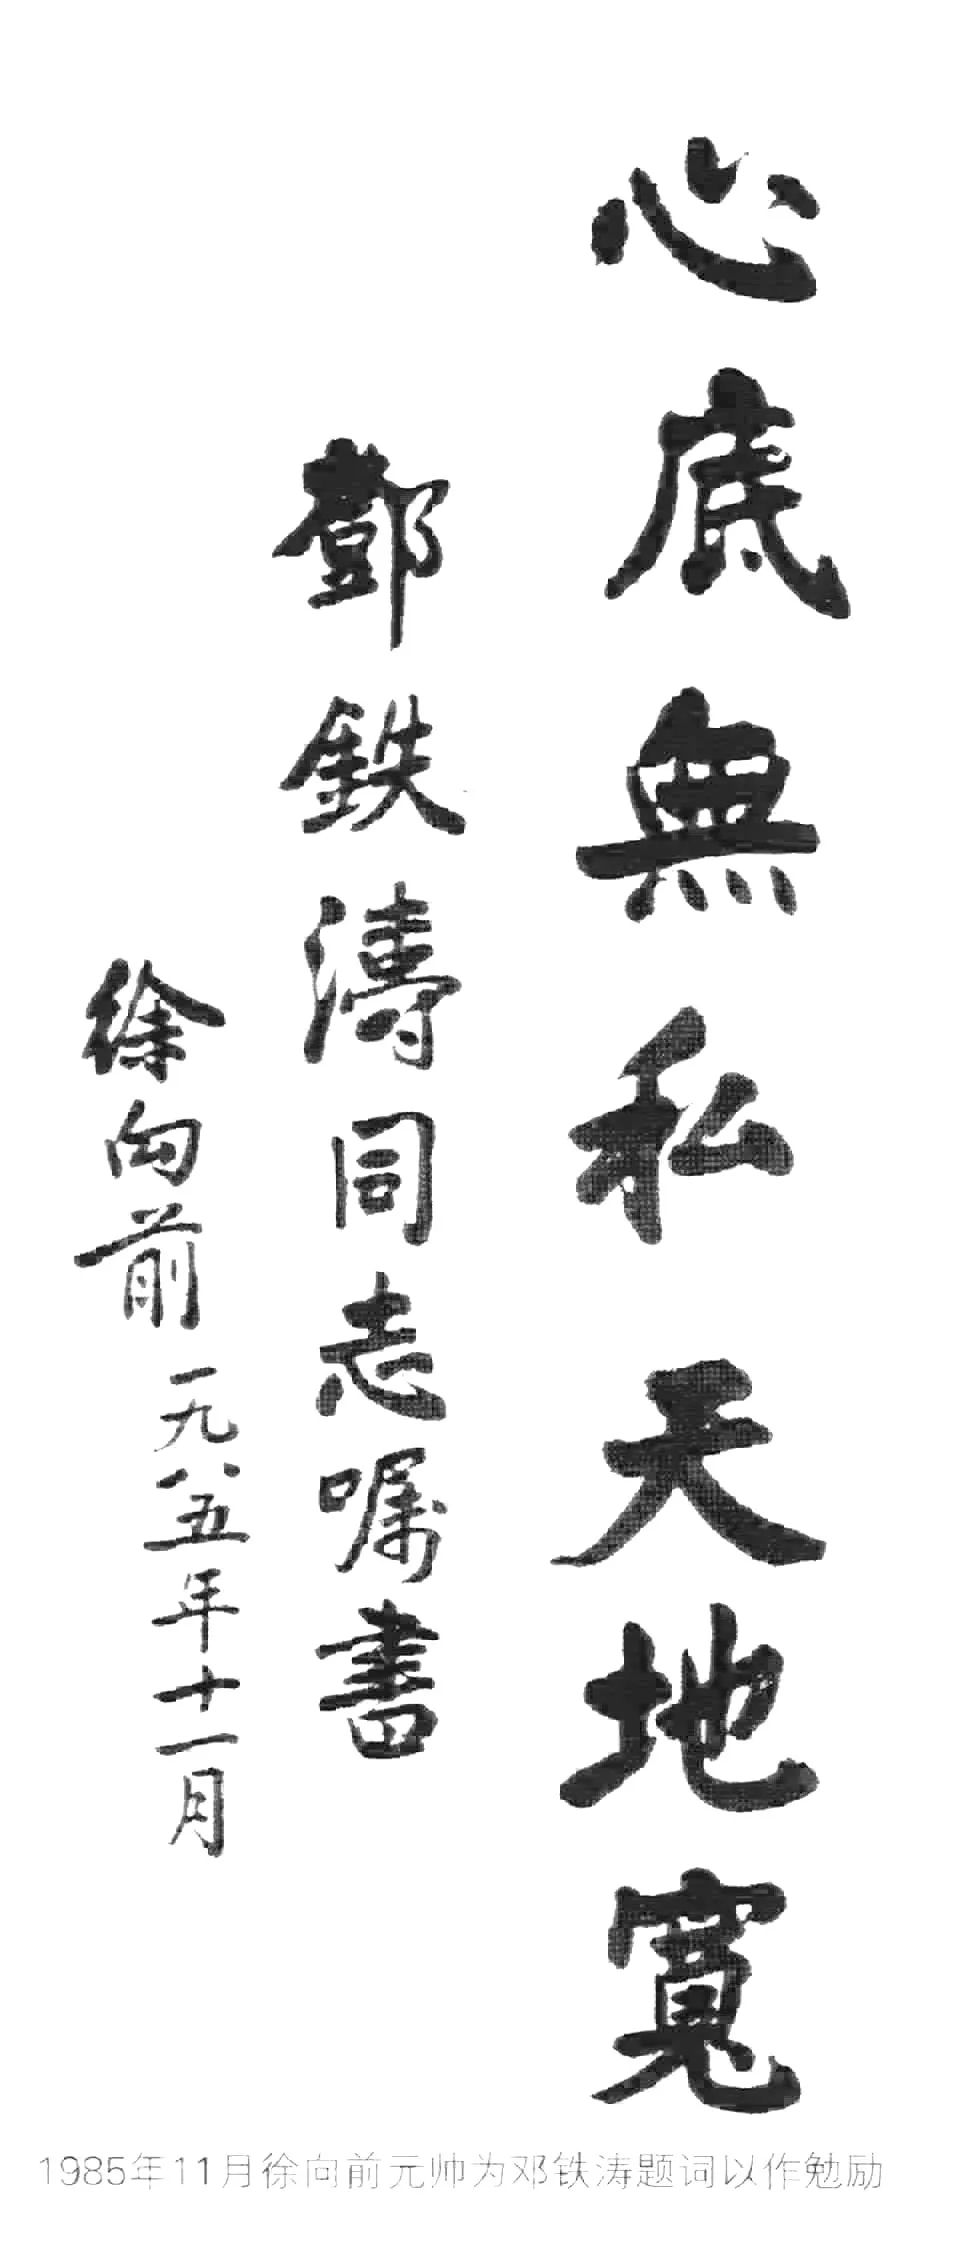 心底無私天地寬
鄧鉄濤同志嘱書
徐向前
一九八五年十一月
1985年11月徐向前元帅为邓铁涛题词以作勉励